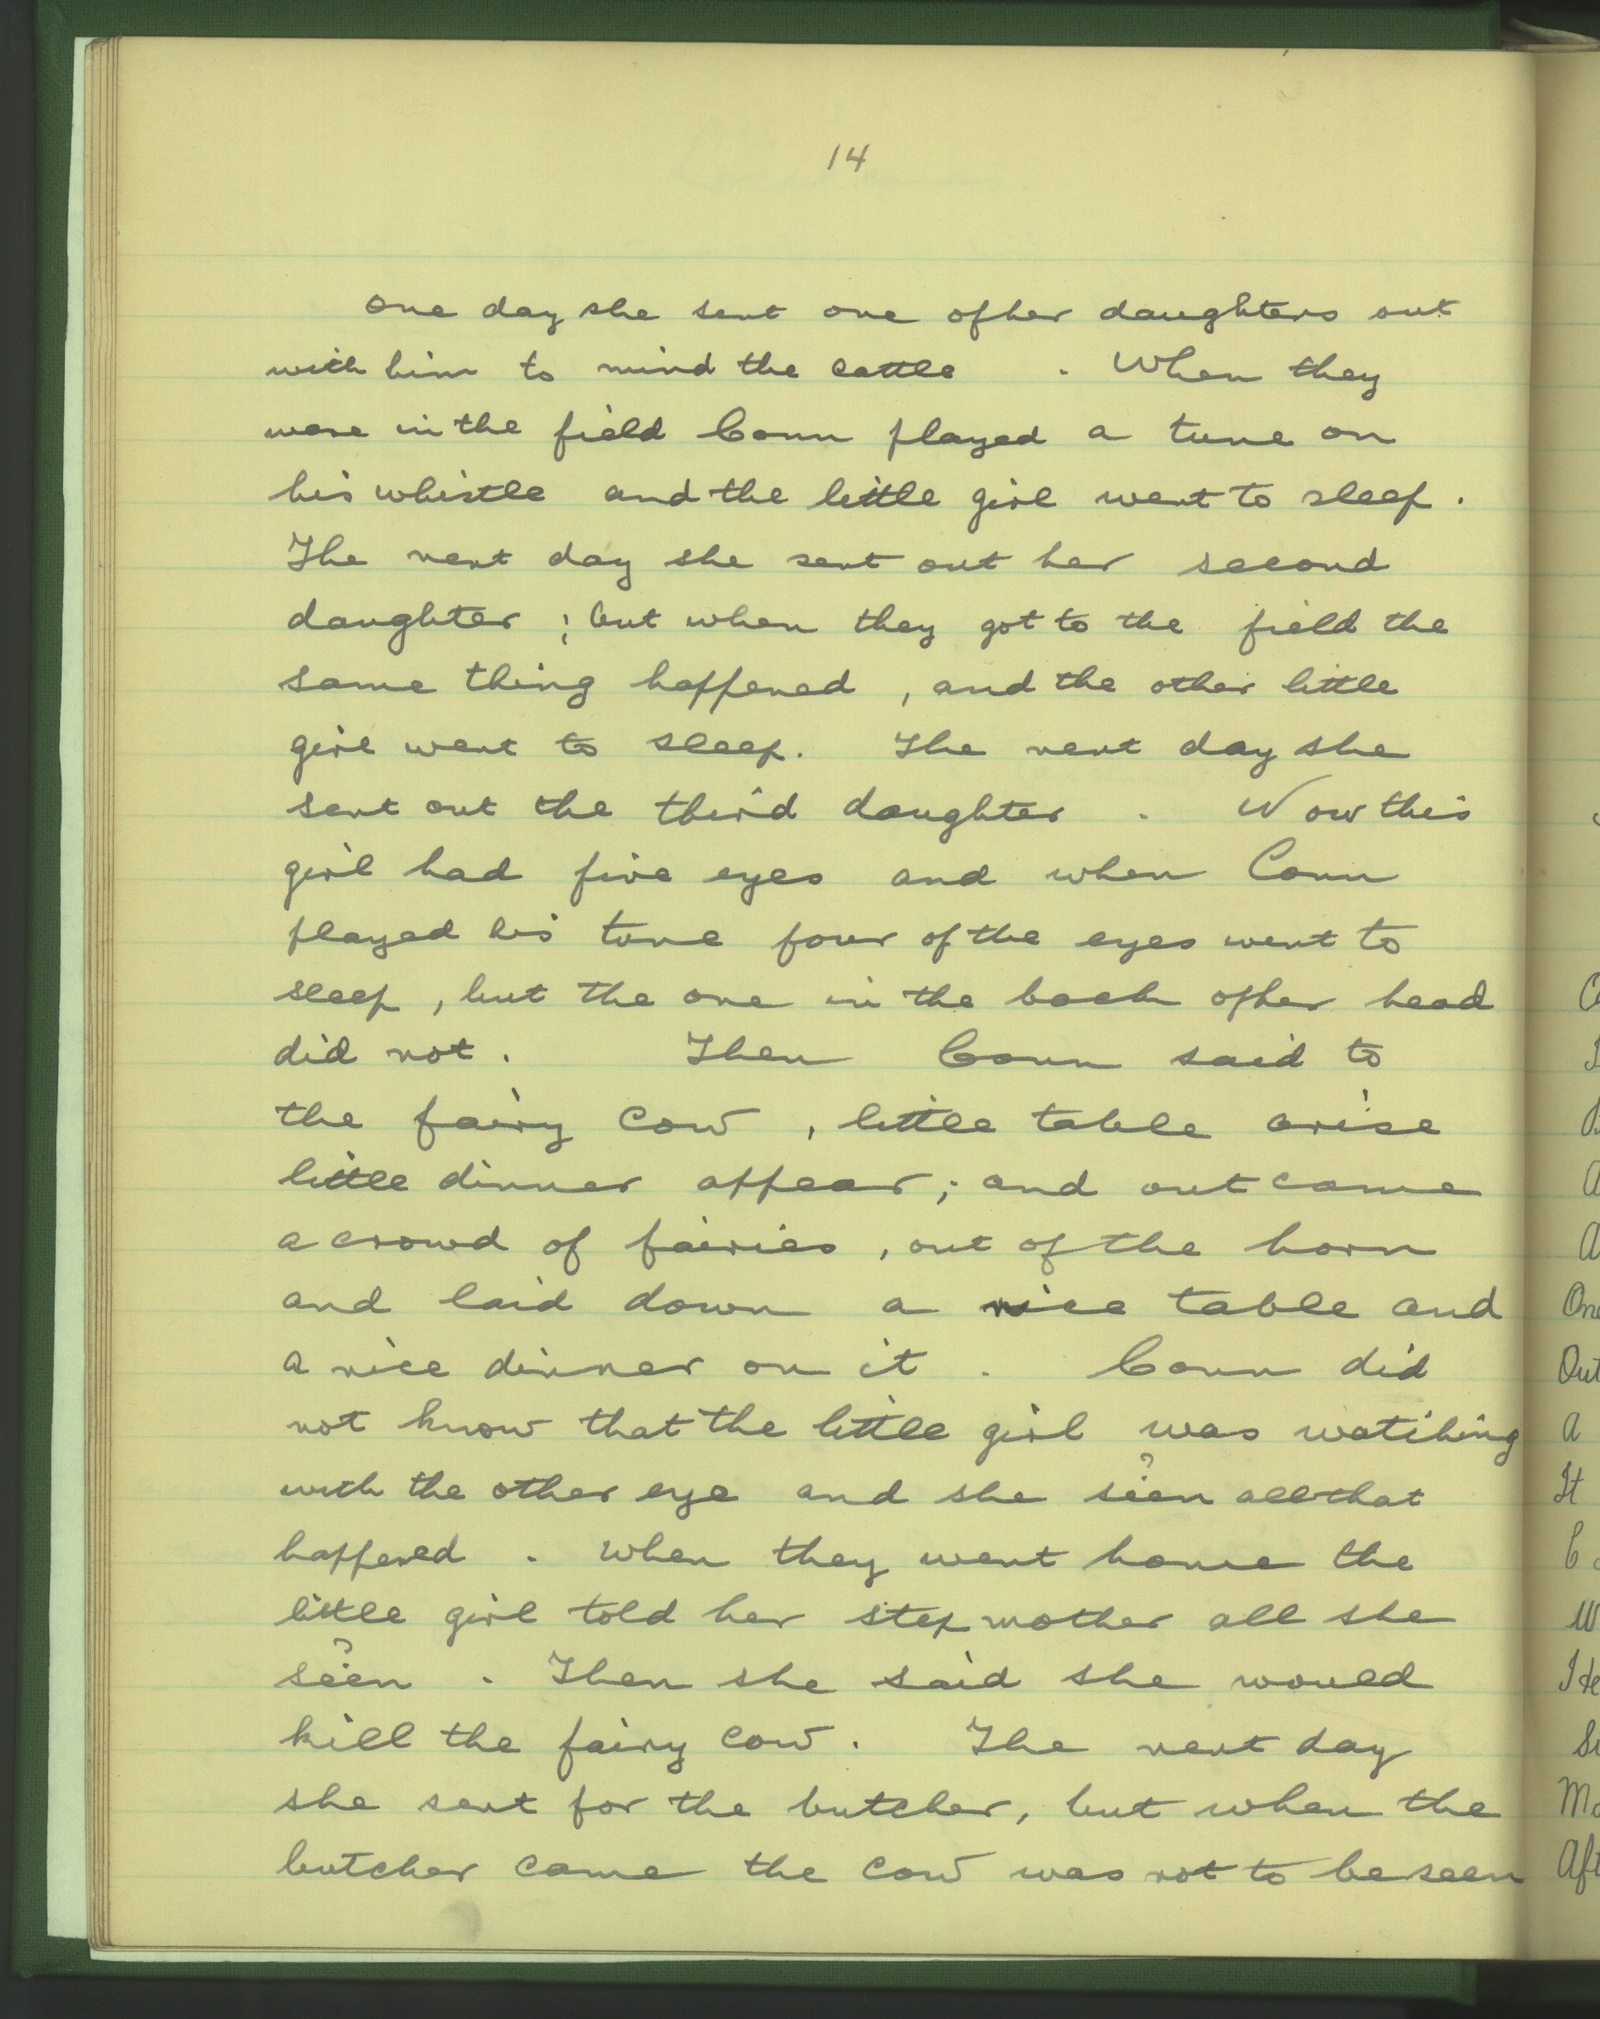 14
one day she sent one of her daughters out
with him to mind the cattle . When they
were in the field Conn played a tune on
his whistle and the little girl went to sleep .
The next day she sent out her second
daughter ; but when they got to the field the
same thing happened , and the other little
girl went to sleep. The next day she
sent out the third daughter . Now this
girl had five eyes and when Conn
played his tune four of the eyes went to
sleep , but the one in the back of her head
did not . Then Conn said to
the fairy cow , little table arise
little dinner appear ; and out came
a crowd of fairies , out of the horn
and laid down a nice table and
a nice dinner on it . Conn did
not know that the little girl was watching
?
with the other eye and she seen all that
happened . When they went home the
little girl told her stepmother all she
?
seen . Then she said she would
kill the fairy cow . The next day
she sent for the butcher, but when the
butcher came the cow was not to be seen
One
Out
A
It